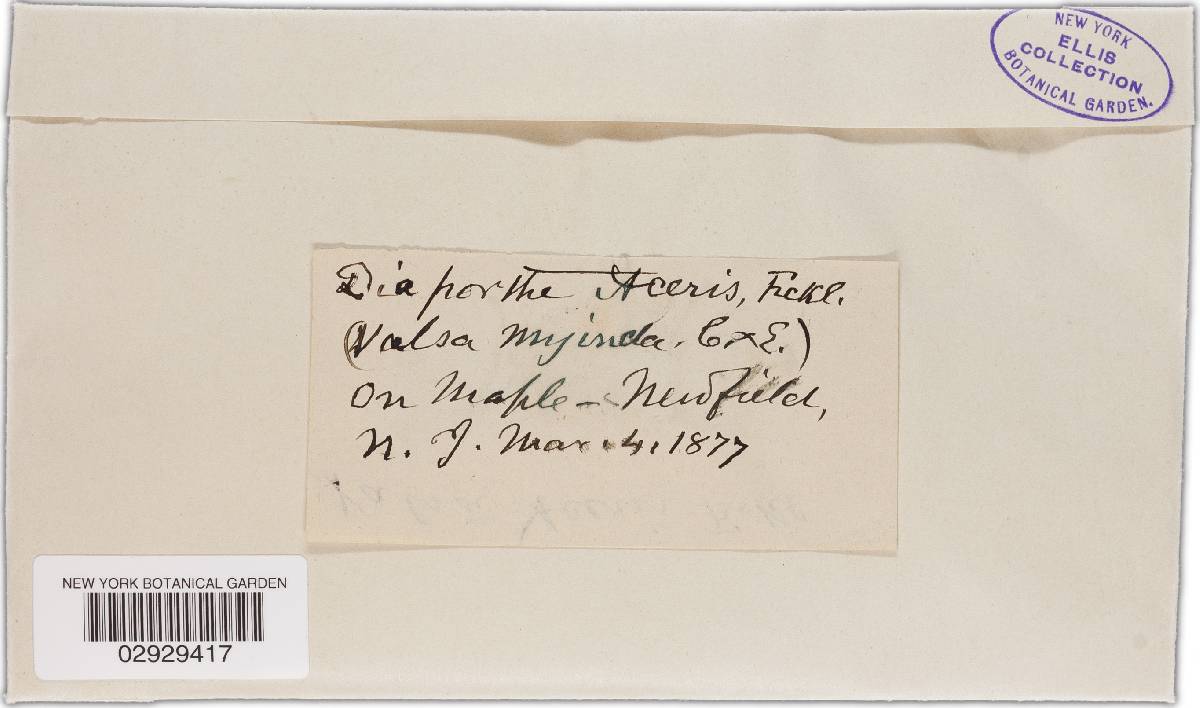 NEW YORK
ELLIS
COLLECTION
BOTANICAL GARDEN.
Diaporthe Aceris, Fckl.
(Valsa myinda. C&E.)
on Maple – Newfield,
N. J. Mar. 4, 1877
NEW YORK BOTANICAL GARDEN
02929417